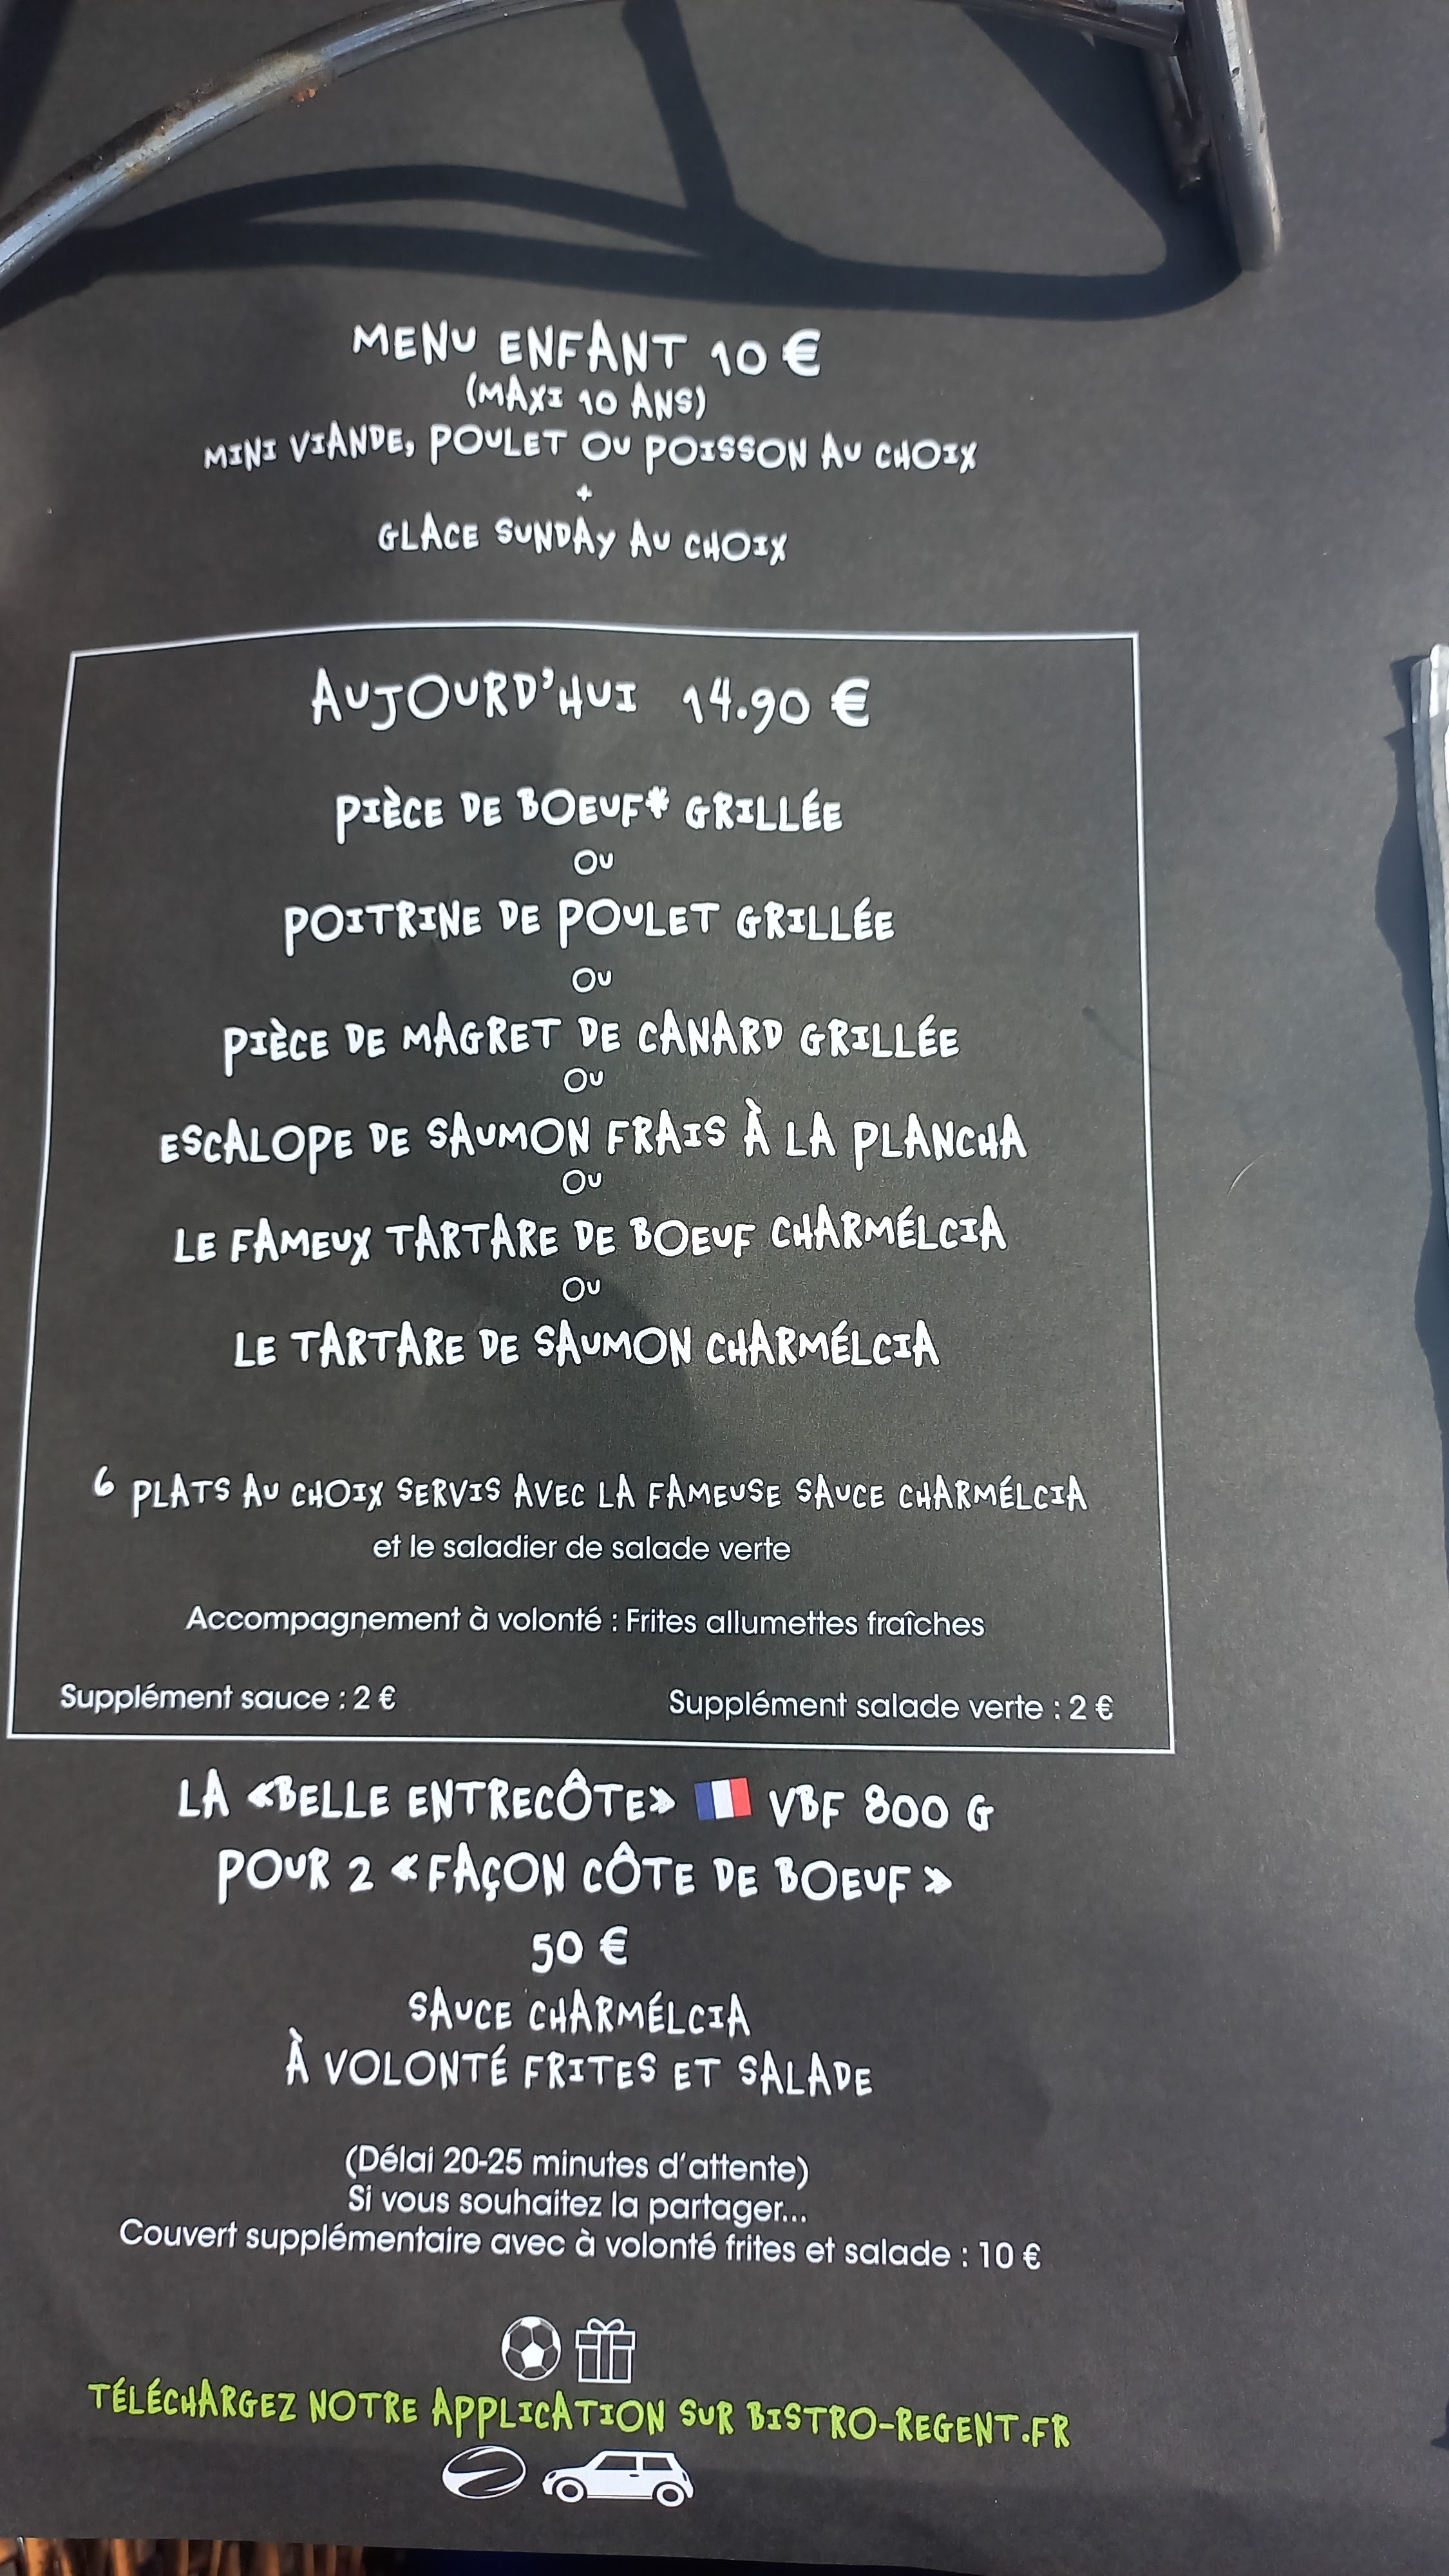 MENU ENFANT 10 €
(MAXI 10 ANS)
MINI VIANDE, POULET OU POISSON AU CHOIX
+
GLACE SUNDAY AU CHOIX
AUJOURD'HUI 14.90 €
PIÈCE DE BOEUF* GRILLÉE
OU
POITRINE DE POULET GRILLÉE
OU
PIÈCE DE MAGRET DE CANARD GRILLÉE
OU
ESCALOPE DE SAUMON FRAIS À LA PLANCHA
OU
LE FAMEUX TARTARE DE BOEUF CHARMÉLCIA
OU
LE TARTARE DE SAUMON CHARMÉLCIA
6 PLATS AU CHOIX SERVIS AVEC LA FAMEUSE SAUCE CHARMÉLCIA
et le saladier de salade verte
Accompagnement à volonté : Frites allumettes fraîches
Supplément sauce : 2 € Supplément salade verte : 2 €
LA «BELLE ENTRECÔTE» VBF 800 G
POUR 2 « FAÇON CÔTE DE BOEUF »
50 €
SAUCE CHARMÉLCIA
À VOLONTÉ FRITES ET SALADE
(Délai 20-25 minutes d'attente)
Si vous souhaitez la partager...
Couvert supplémentaire avec à volonté frites et salade : 10 €
TÉLÉCHARGEZ NOTRE APPLICATION SUR BISTRO-REGENT.FR